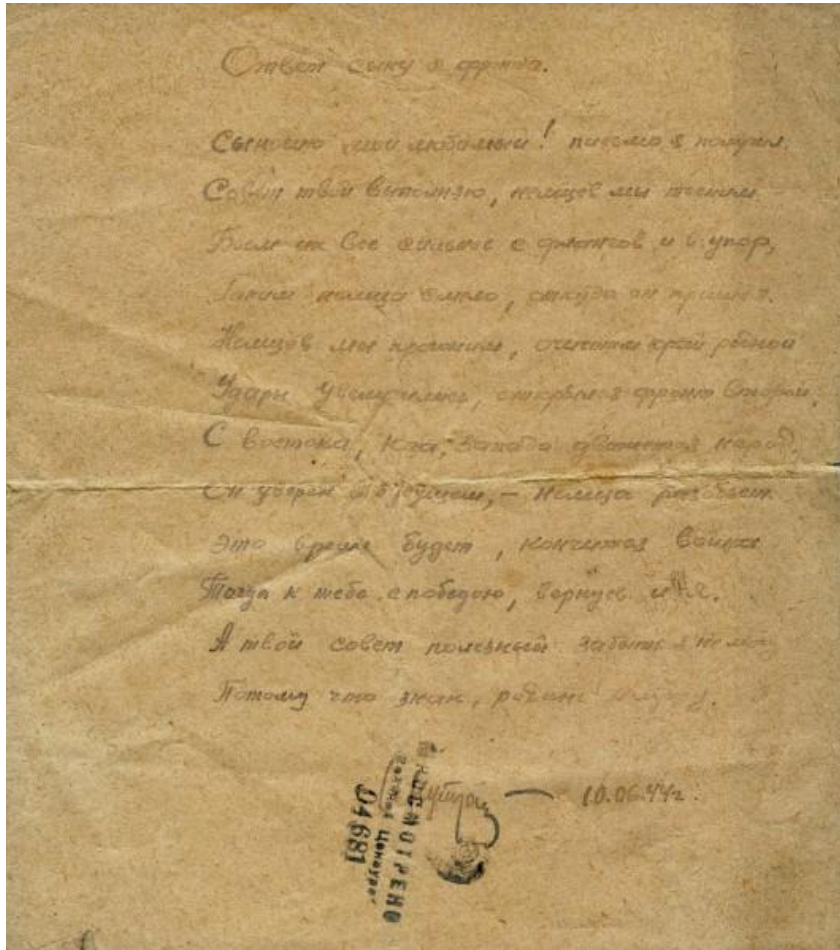 Ответ сыну с фронта.
Сыночек мой любимый! письмо я получил.
Совет твой выполняю, немцев мы тесним
Бьем их все сильнее с флангов и в упор,
Гоним немца смело, откуда он пришел.
Немцев мы прогоним, очистим край родной
Удары увеличились, открылся фронт второй.
С востока, юга, запада движется народ,
Он уверен в будущем, – немца разобьет.
Это время будет, кончится война
Тогда к тебе с победою, вернусь и я.
А твой совет полезный забыть я не могу
Потому что знаю, родине служу.
10.06.44г.
ПРОСМОТРЕНО
Военной Цензурой
04681